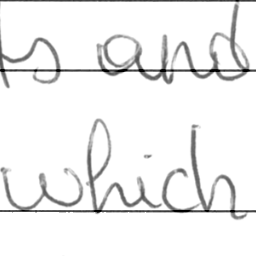 and
which